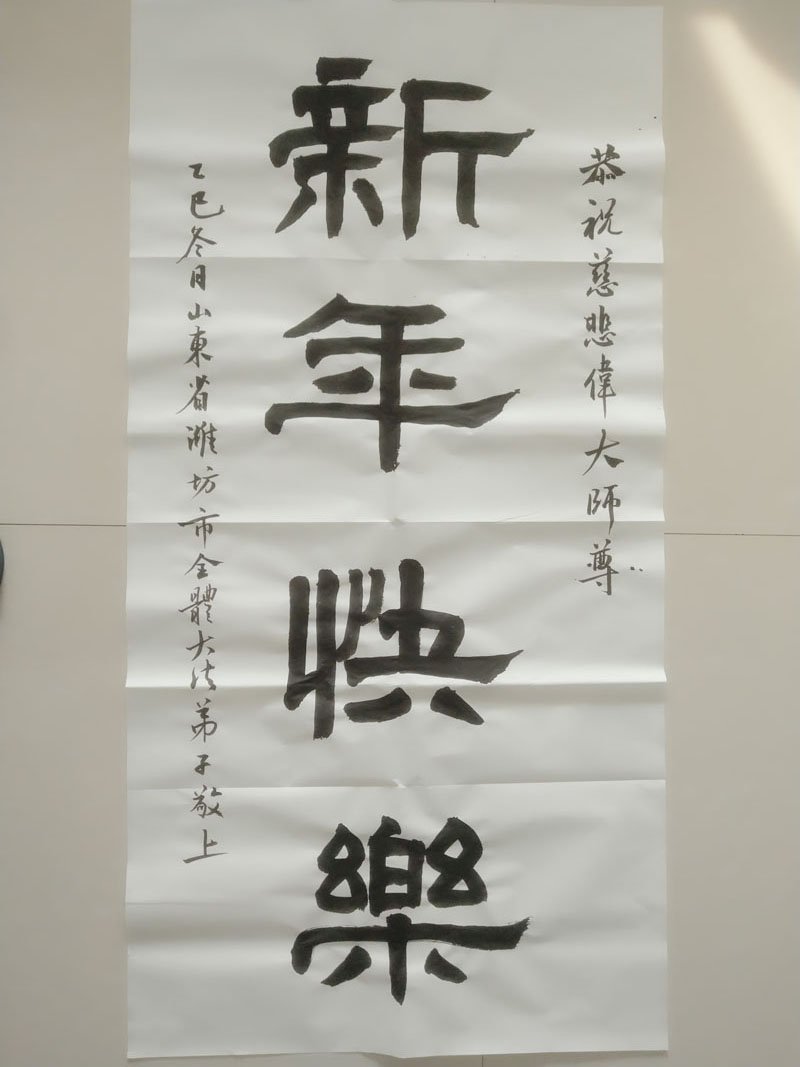 恭祝慈悲偉大師尊
新年快樂
乙巳冬月山東省濰坊市全體大法弟子敬上